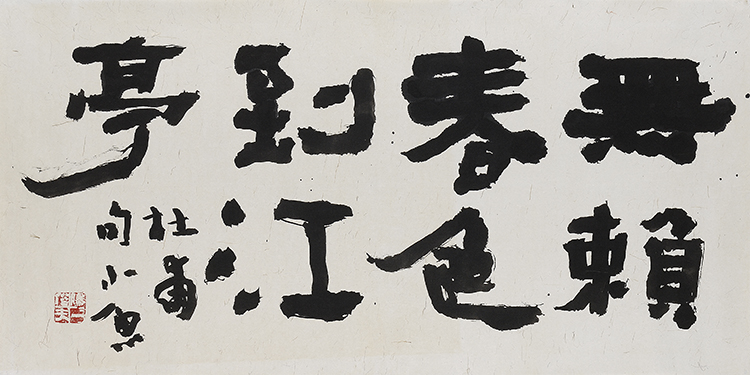 無賴
春色
到江
亭
杜甫
句小魚